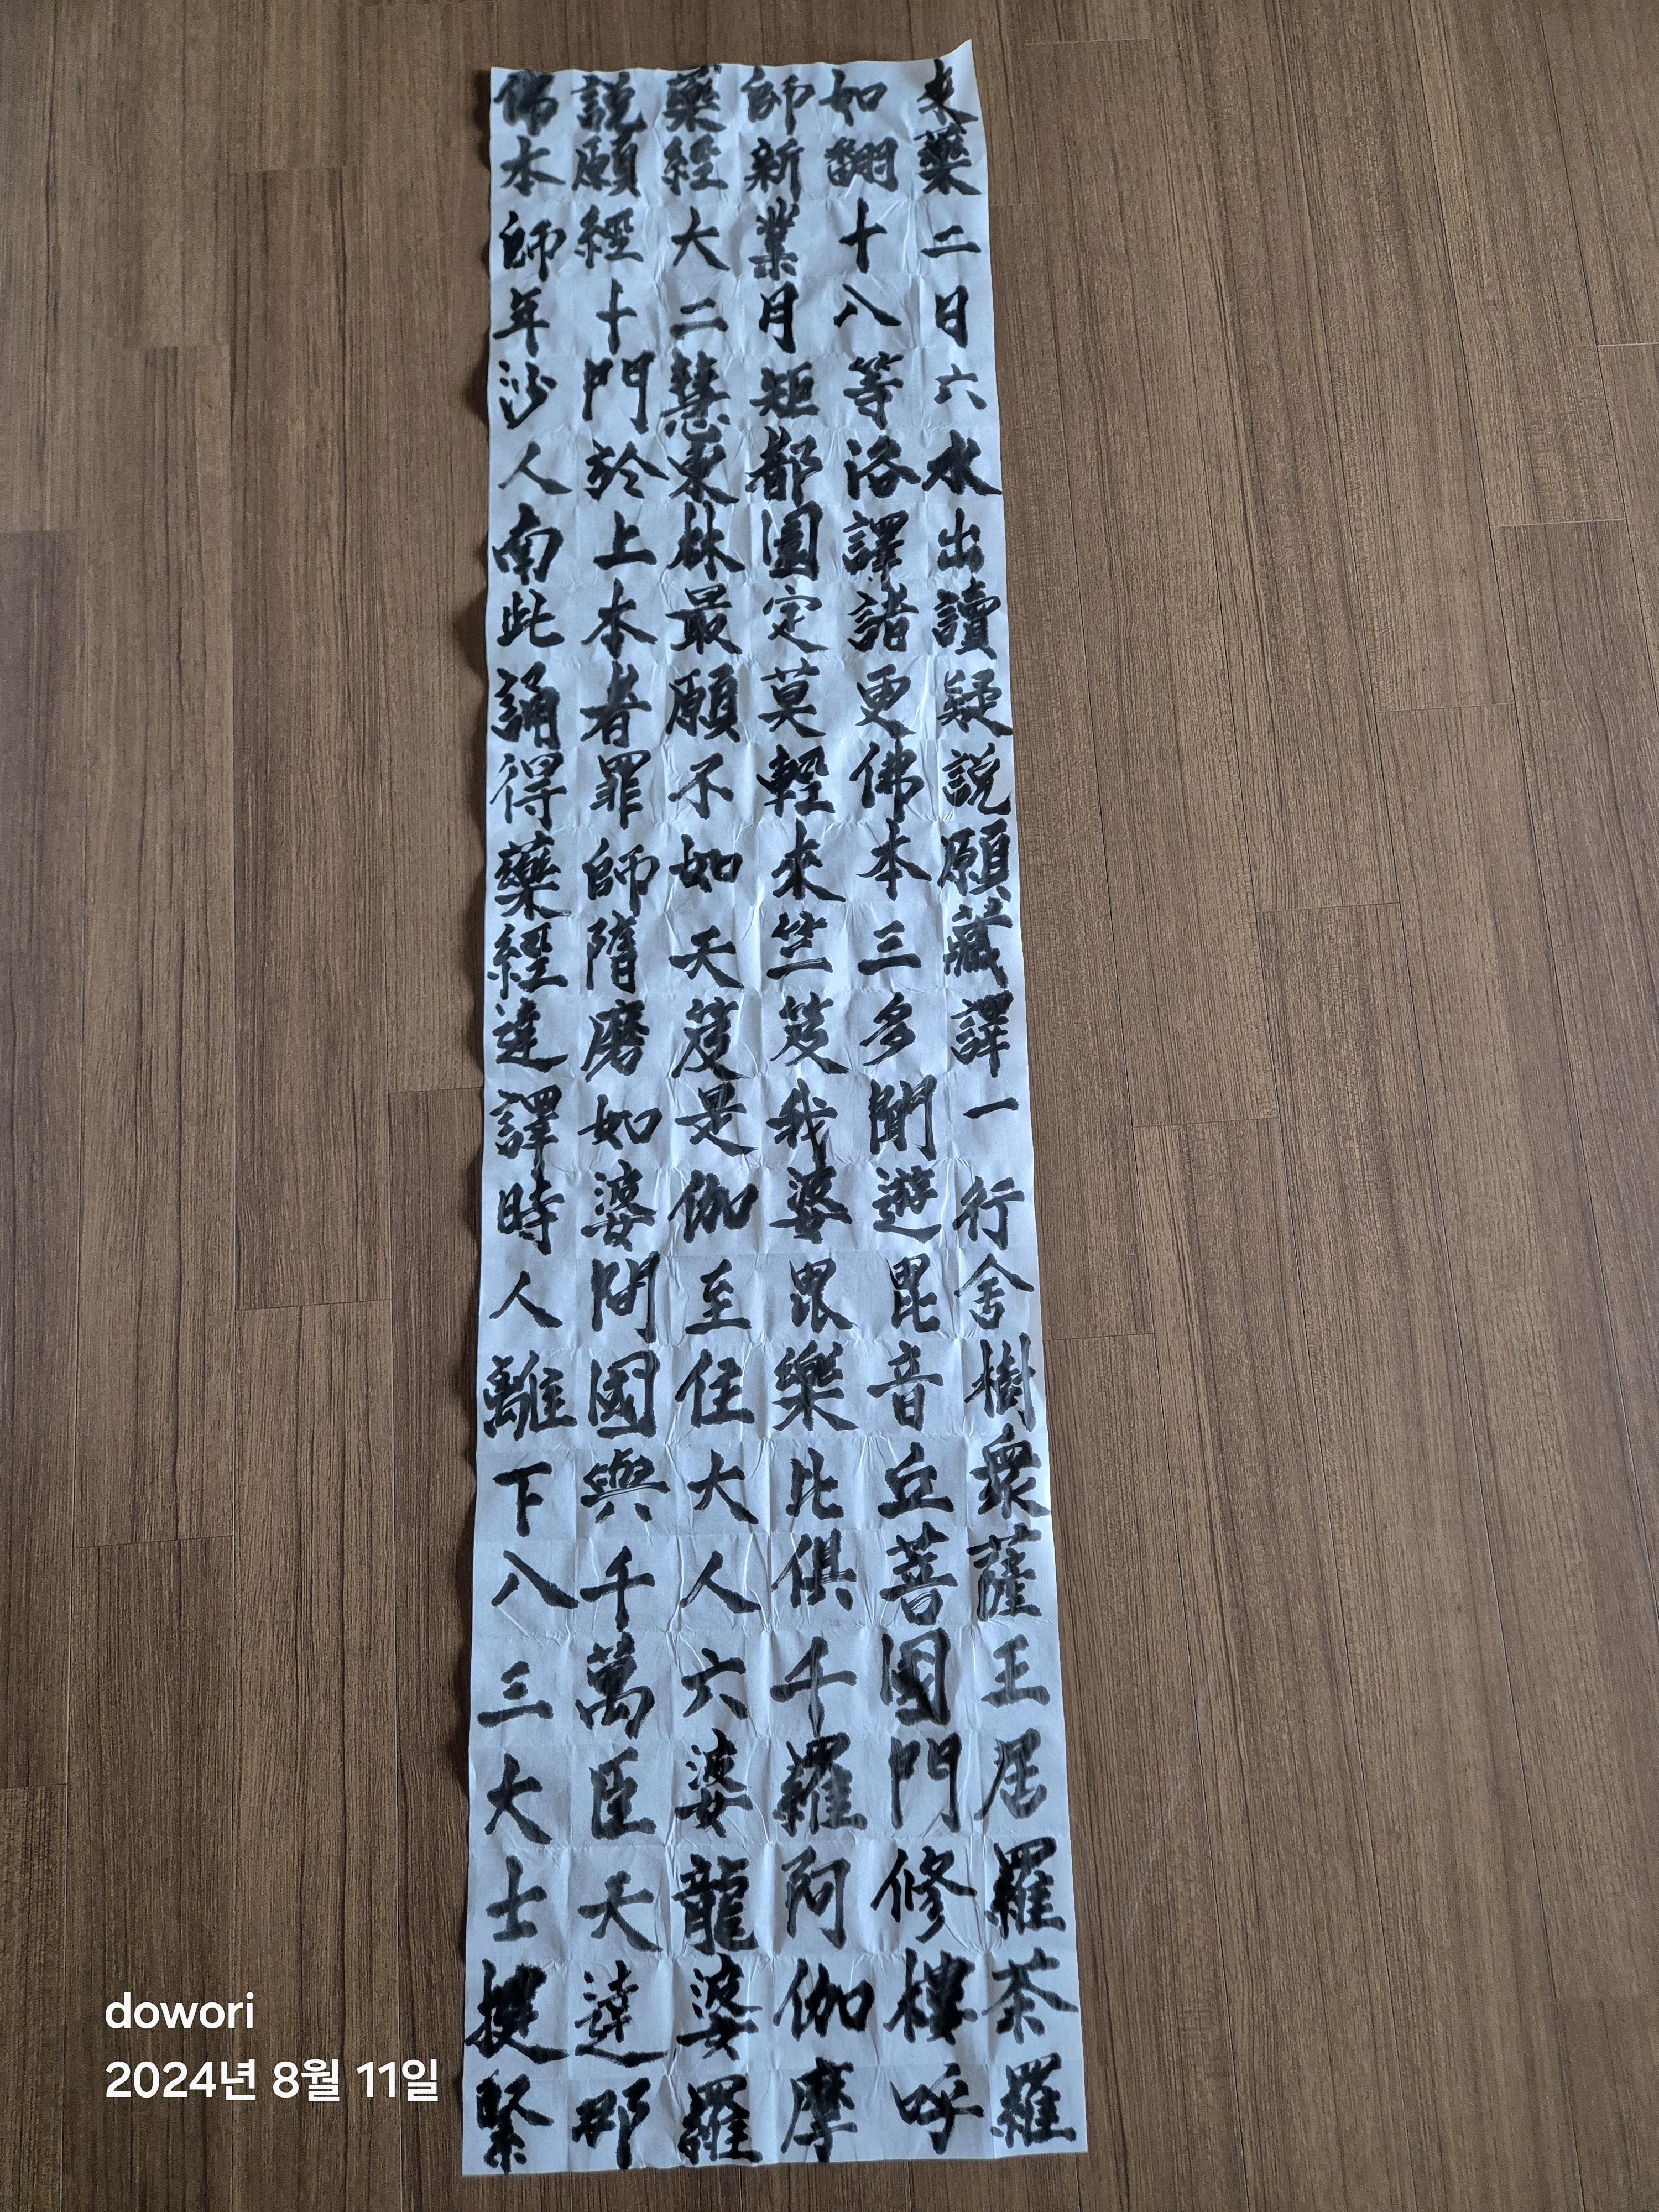 佛說藥師如來
本願經新翻藥
師經大業十二
年十二月八日
沙門慧矩等六
人於東都洛水
南上林園譯出
此本最定諸讀
誦者願莫更疑
得罪不輕佛說
藥師如來本願
經隋天竺三藏
達磨笈笈多譯
譯如是我聞一
時婆伽婆遊行
人間至毘毘舍
離國住樂音樹
下與大比丘衆
八千人俱菩薩
三萬六千國王
大臣婆羅門居
士天龍阿修羅
揵達婆伽樓荼
緊那羅摩呼羅
dowori
2024년 8월 11일